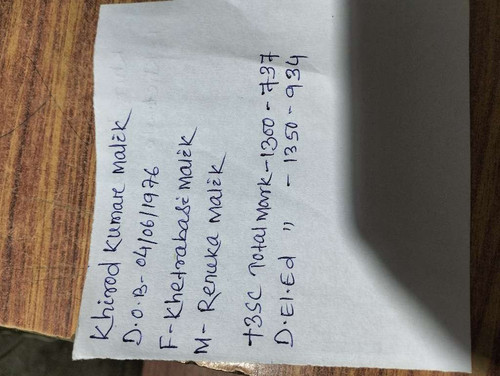 Khirod Kumar Malik
D.O.B- 04/06/1976
F- Khetrabasi Malik
M- Renuka Malik
+3SC Total Mark-1300 - 737
D.El.Ed " - 1350 - 934